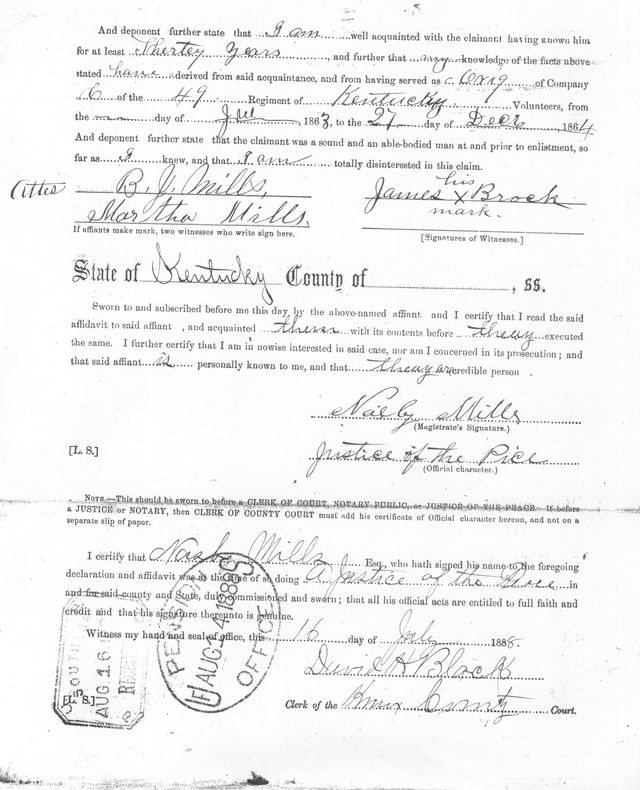 And deponent further state that I am well acquainted with the claimant having known him
for at least Thertey Years, and further that my knowledge of the facts above
stated have derived from said acquaintance, and from having served as Orig of Company
C of the 49 Regiment of Kentucky Volunteers, from
the day of July, 1863, to the 27 day of Decr, 1864
And deponent further state that the claimant was a sound and an able-bodied man at and prior to enlistment, so
far as I knew, and that I am totally disinterested in this claim.
Attes
B. J. Mills,
Martha Mills.
If affiants make mark, two witnesses who write sign here.
his
James X Brock
mark.
[Signatures of Witnesses.]
State of Kentucky County of , ss.
Sworn to and subscribed before me this day by the above-named affiant and I certify that I read the said
affidavit to said affiant , and acquainted them with its contents before theuy executed
the same. I further certify that I am in nowise interested in said case, nor am I concerned in its prosecution; and
that said affiant is personally known to me, and that theuy are credible person .
Mills
(Magistrate's Signature.)
[L. S.]
Justice of the Pice
(Official character.)
NOTE.—This should be sworn to before a CLERK OF COURT, NOTARY PUBLIC, or JUSTICE OF THE PEACE. If before
a JUSTICE or NOTARY, then CLERK OF COUNTY COURT must add his certificate of Official character hereon, and not on a
separate slip of paper.
I certify that Mills Esq., who hath signed his name to the foregoing
declaration and affidavit was at the time of so doing a Justice of the Pice in
and for said county and State, duly commissioned and sworn; that all his official acts are entitled to full faith and
credit and that his signature thereunto is genuine.
Witness my hand and seal of office, this 16 day of July 1888.
[L. S.]
David H Black
Clerk of the Knox County Court.
PENSION OFFICE
U.S.
AUG 4 1888
AUG 16